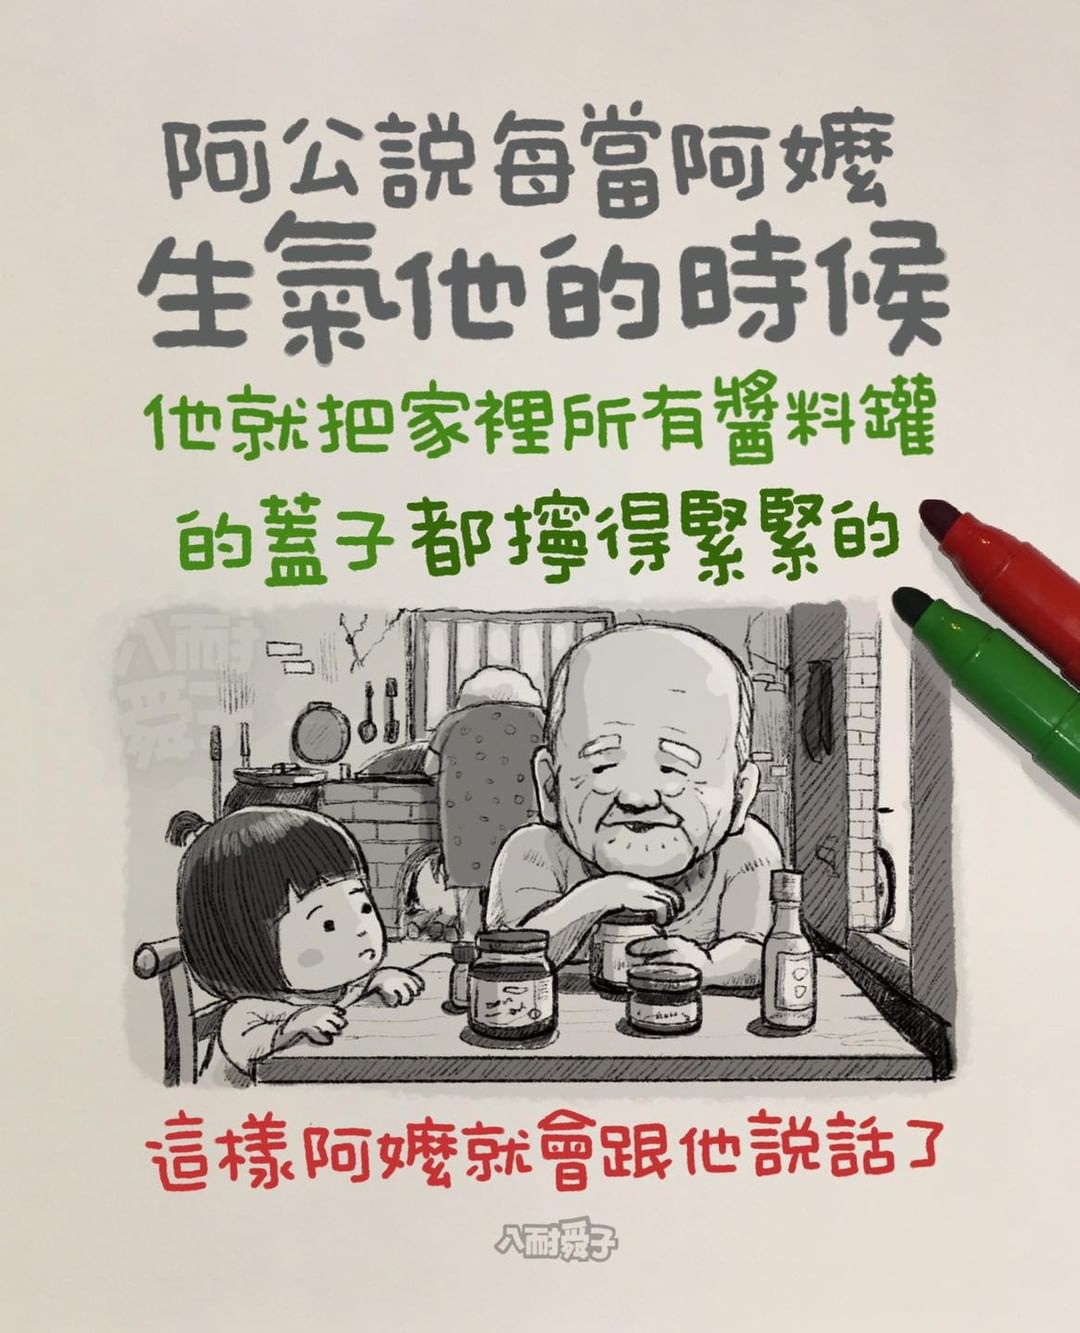 阿公説每當阿嬤
生氣他的時候
他就把家裡所有醬料罐
的蓋子都擰得緊緊的
八耐
舜子
這樣阿嬤就會跟他説話了
八耐舜子